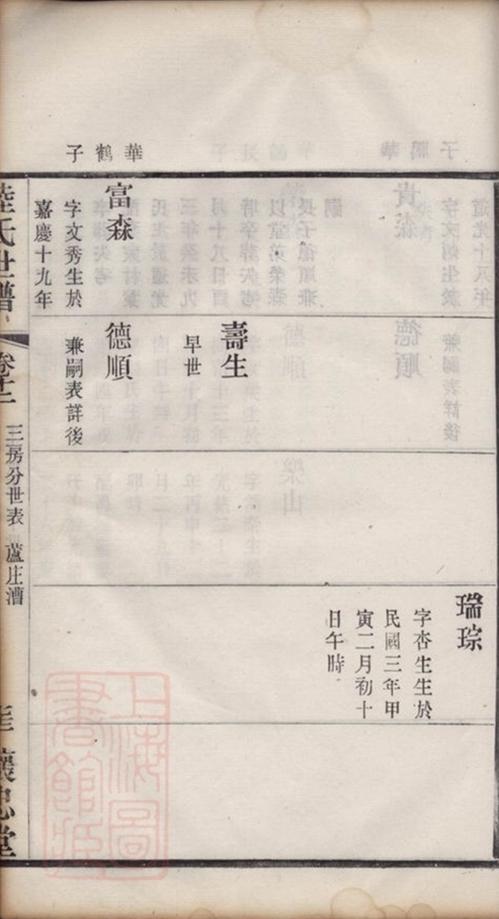 華鶴子
富森
字文秀生於
嘉慶十九年
壽生
早世
德順
兼嗣表詳後
瑞琮
字杏生生於
民國三年甲
寅二月初十
日午時
陸氏世譜
卷十二
三房分世表 蘆庄漕
懷忠堂
上海圖書館藏